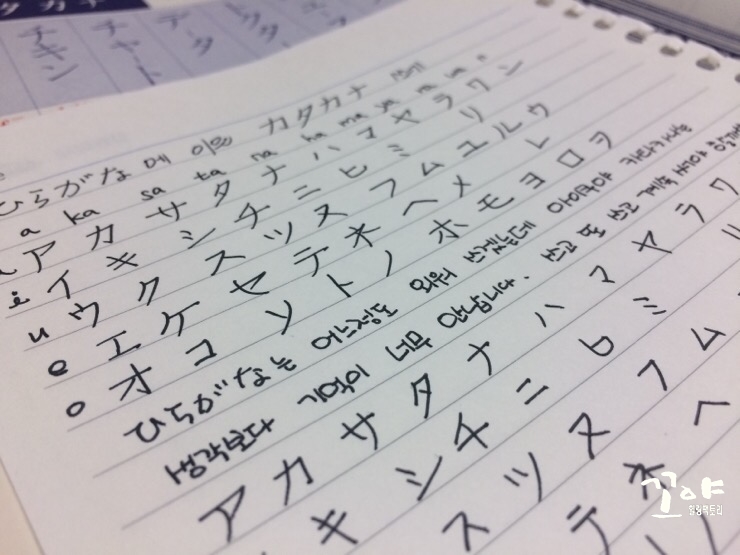 タカナ
チキン
チャート
データ
ひらがな에 이은 カタカナ 쓰기
a ka sa ta na ha ma ya ra wa n
ア カ サ タ ナ ハ マ ヤ ラ ワ ン
i イ キ シ チ ニ ヒ ミ リ
u ウ ク ス ツ ヌ フ ム ユ ル ウ
e エ ケ セ テ ネ ヘ メ レ
o オ コ ソ ト ノ ホ モ ヨ ロ ヲ
ひらがな는 어느정도 외워 쓰겠는데
생각보다 기억이 너무 안납니다. 쓰고 또 쓰고 계속 써야
ア カ サ タ ナ ハ マ ヤ ラ ワ
キ シ チ ニ ヒ ミ リ
ス ツ ヌ フ ム
テ ネ ヘ
꼬야
힐링팩토리